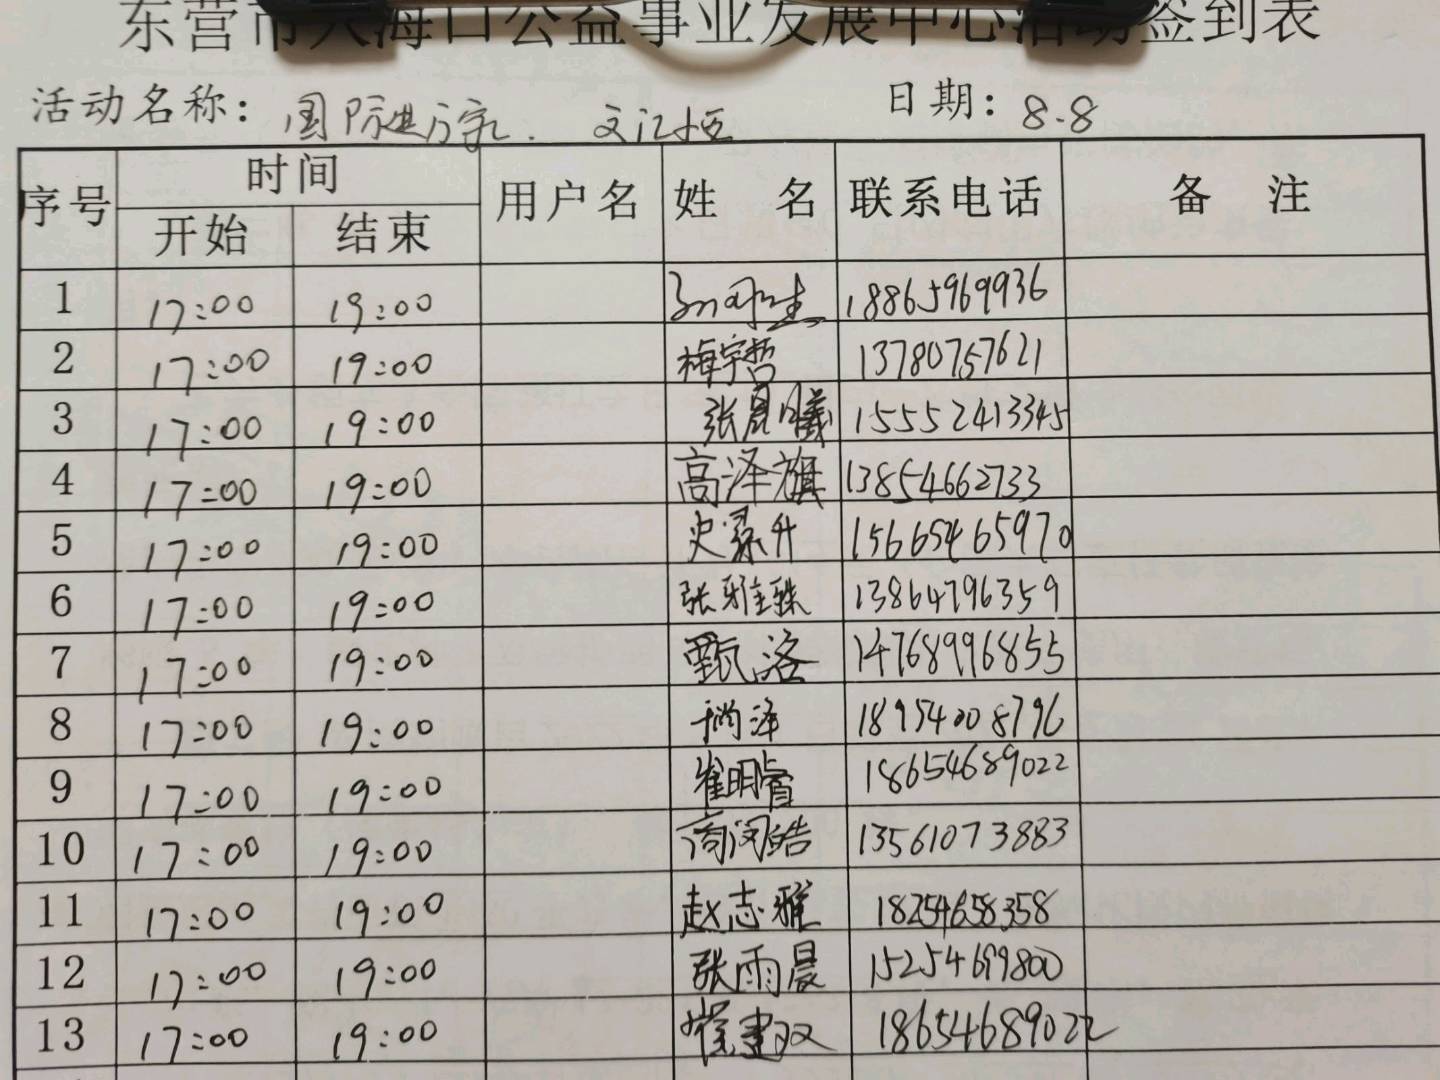 东营市大海口公益事业发展中心活动签到表
活动名称: 国际 日期: 8.8
序号 时间 用户名 姓 名 联系电话 备 注
开始 结束
1 17:00 19:00 18865969936
2 17:00 19:00 梅宇哲 13780757621
3 17:00 19:00 张晨曦 15552413345
4 17:00 19:00 高泽旗 13854662733
5 17:00 19:00 15665465970
6 17:00 19:00 张雅姝 13864796359
7 17:00 19:00 甄洛 14768996855
8 17:00 19:00 18954008796
9 17:00 19:00 崔明睿 18654689022
10 17:00 19:00 商闵皓 13561073883
11 17:00 19:00 赵志雅 18254658358
12 17:00 19:00 张雨晨 15254699800
13 17:00 19:00 崔建双 18654689022